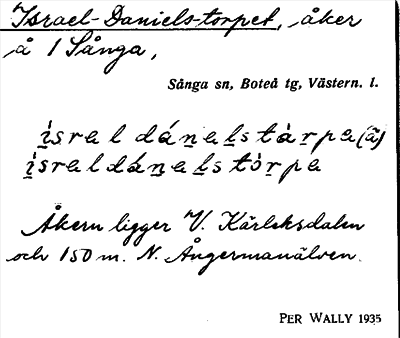 Israel-Daniels-torpet, åker
å 1 Sånga,
Sånga sn, Boteå tg, Västern. l.
ìsral dánalstàrpa (ä)
ìsraldánalstòrpa
Åkern ligger V. Kärleksdalen
och 150 m. N. Ångermanälven.
PER WALLY 1935